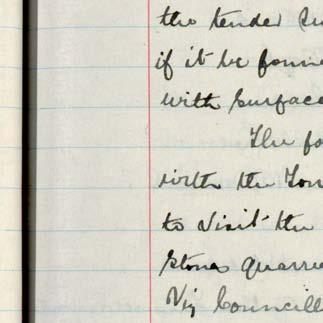 the tender su
if it be foun
with surface
The fo
with the Tow
to visit the
stones quarrie
Viz Councill